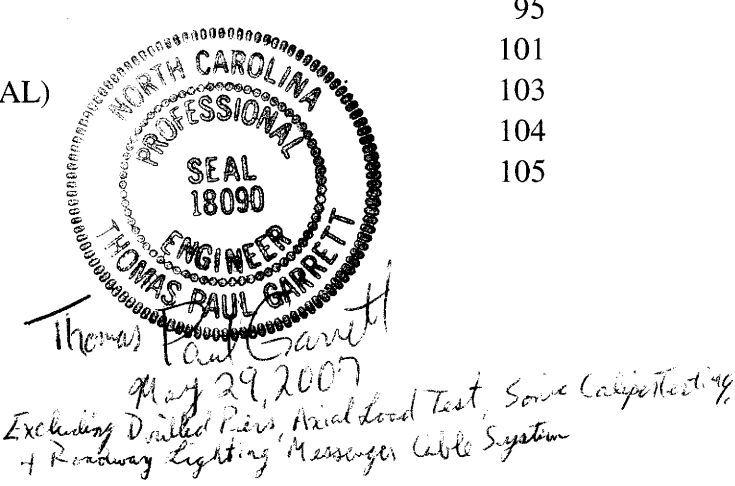 95
101
AL)
103
104
105
NORTH CAROLINA
PROFESSIONAL
SEAL
18090
ENGINEER
THOMAS PAUL GARRETT
Thomas Paul Garrett
May 29, 2007
Excluding Drilled Piers, Axial Load Test, Sonic Caliper Testing,
+ Roadway Lighting Messenger Cable System